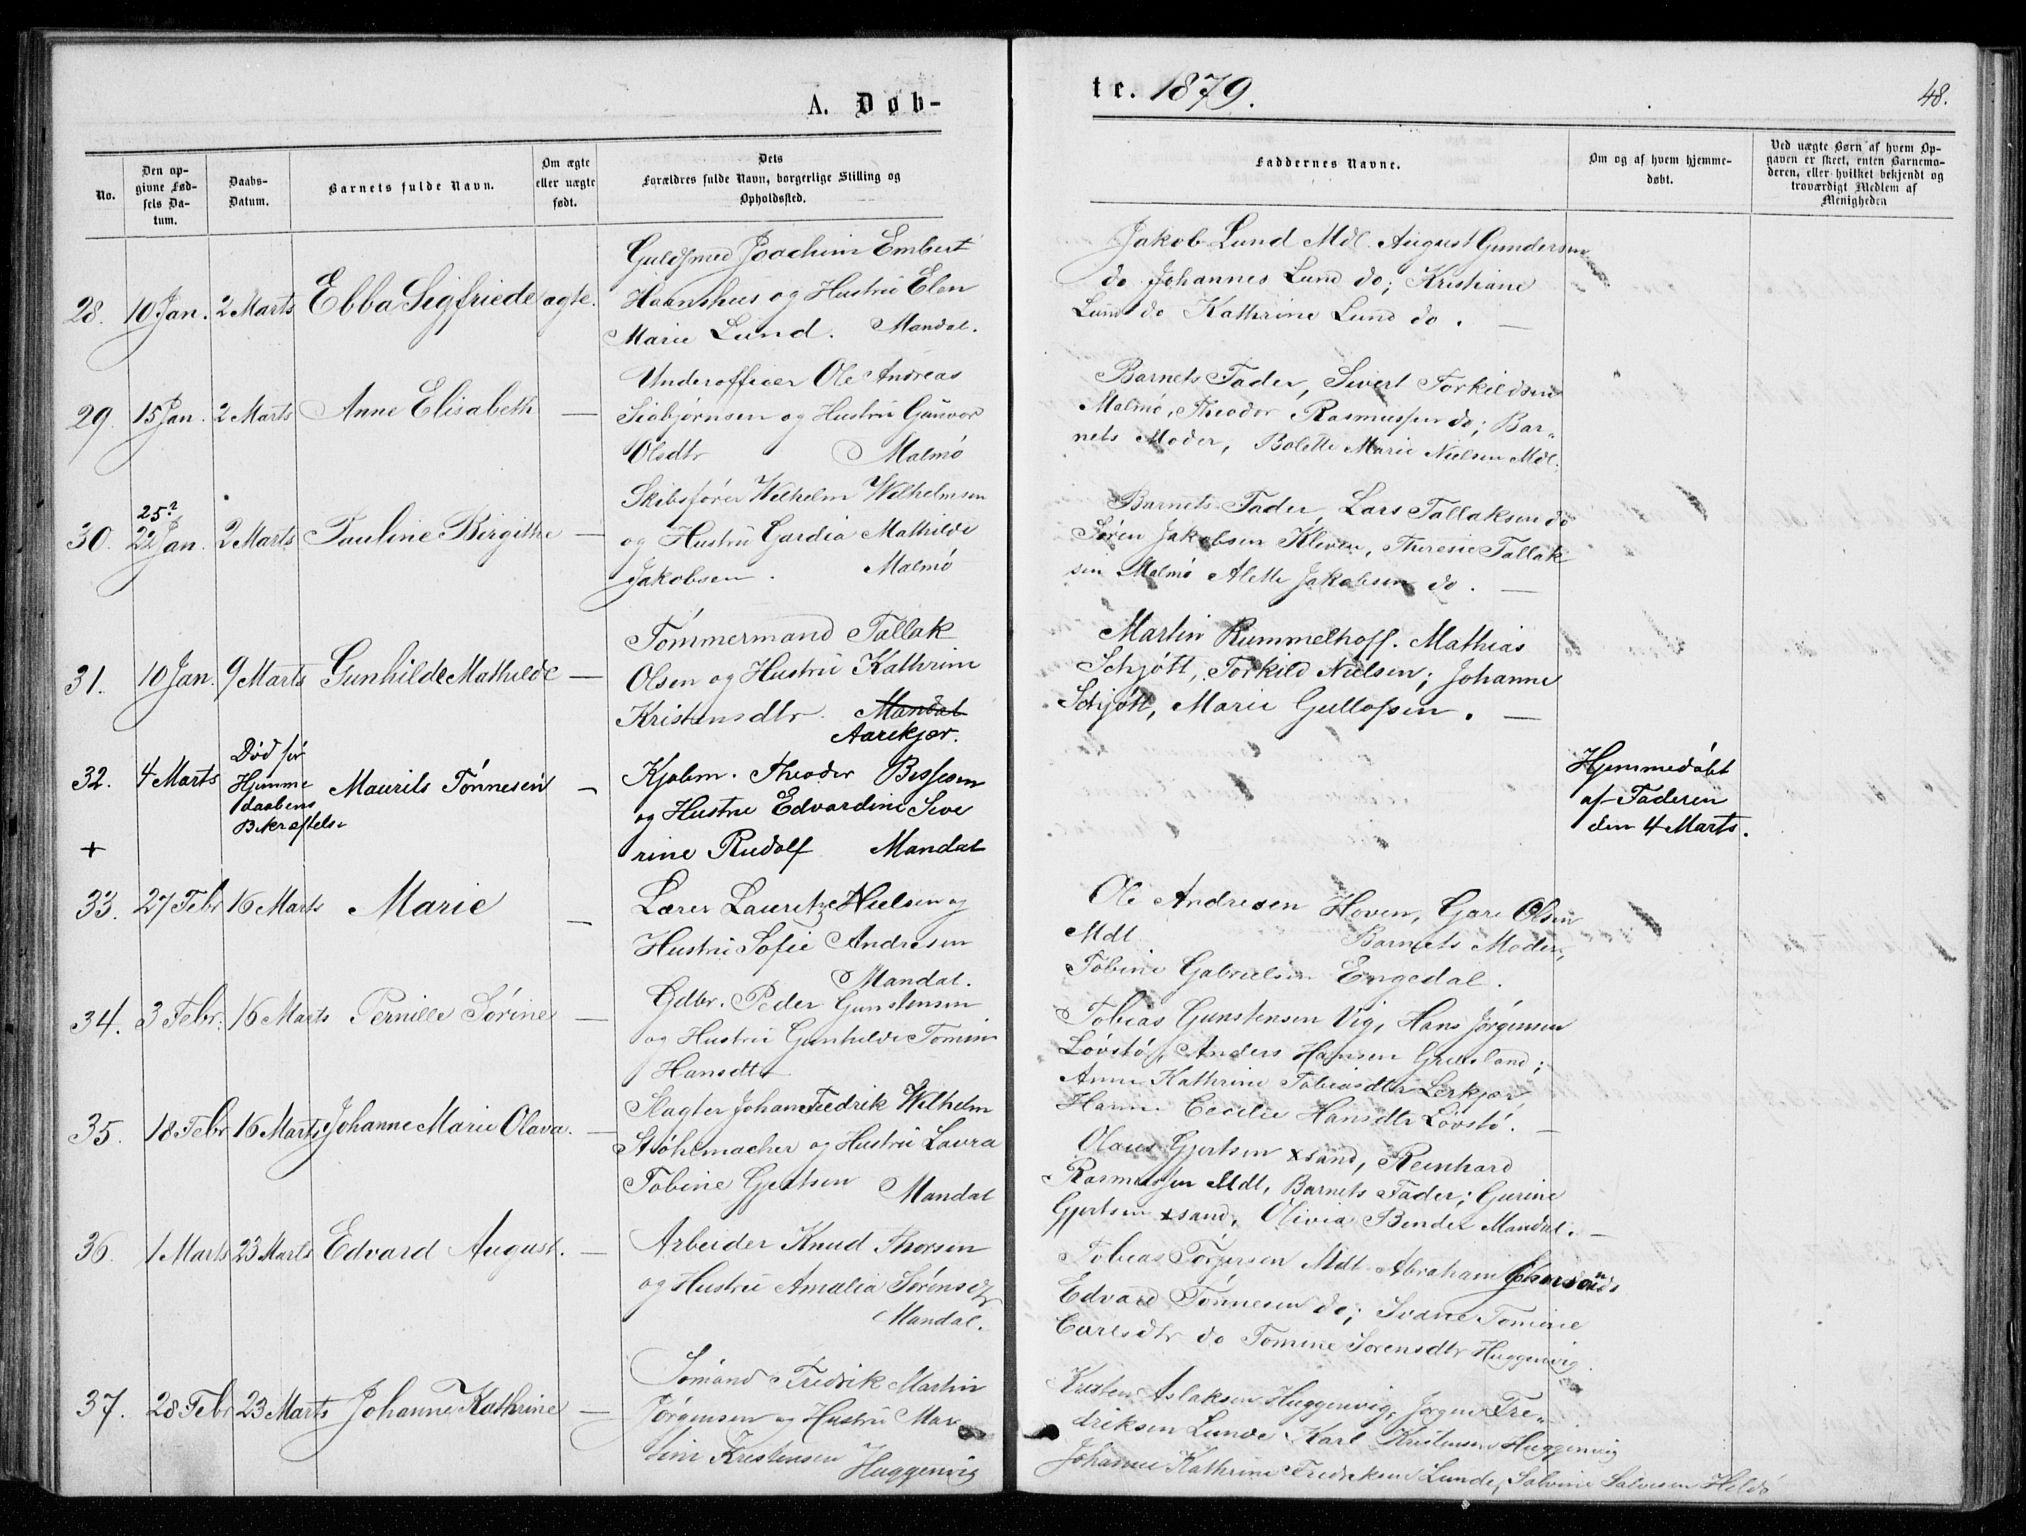 A. Døb-
No.
Den op-
givne Fød-
sels Da-
tum.
Daabs-
Datum.
Barnets fulde Navn.
Om ægte
eller uægte
født.
Dets
Forældres fulde Navn, borgerlige Stilling og
Opholdssted.
28. 10 Jan. 2 Marts Ebba Sigfriede ægte.
Guldsmed Joachim Embert
Haanshus og Hustru Elen
Marie Lund. Mandal.
29. 15 Jan. 2 Marts Anne Elisabeth —
Underofficer Ole Andreas
Seabjørnsen og Hustru Gunvor
Olsdtr Malmø
25?
30. 22 Jan. 2 Marts Pauline Birgithe —
Skibsfører Wilhelm Wilhelmsen
og Hustru Gardia Mathilde
Jakobsen. Malmø
31. 10 Jan. 9 Marts Gunhilde Mathilde —
Tømmermand Tallak
Olsen og Hustru Kathrine
Kristensdtr. Mandal
Aarekjær.
32. 4 Marts
Død før
Hjemme
daabens
Bekræftelse
Maurits Tønnesen —
+
Kjøbm. Theodor Bessesen
og Hustru Edvardine Seve
rine Rudolf Mandal
33. 27 Febr 16 Marts Marie —
Lærer Lauritz Nielsen og
Hustru Sofie Andresen
Mandal.
34. 3 Febr. 16 Marts Pernille Sørine —
Gdbr. Peder Gunstensen
og Hustru Gunhilde Tomine
Hansdtr
35. 18 Febr 16 Marts Johanne Marie Olava. —
Slagter Johan Fredrik Wilhelm
Støhlmacher og Hustru Laura
Tobine Gjertsen Mandal
36. 1 Marts 23 Marts Edvard August. —
Arbeider Knud Thorsen
og Hustru Amalia Sørensdtr
Mandal.
37. 28 Febr 23 Marts Johanne Kathrine —
Sømand Fredrik Martin
Jørgensen og Hustru Mar
tine Kristensen
Huggenvig
te. 1879.
48.
Faddernes Navne.
Om og af hvem hjemme-
døbt.
Ved uægte Børn af hvem Op-
gaven er skeet, enten Barnemo-
deren, eller hvilket bekjendt og
troværdigt Medlem af
Menigheden
Jakob Lund Mdl. August Gundersen
do Johannes Lund do; Kristiane
Lund do Kathrine Lund do. —
Barnets Fader, Sivert Torkildsen
Malmø, Theodor Rasmussen do; Bar-
nets Moder, Bolette Marie Nielsen Mdl.
Barnets Fader, Lars Tallaksen do
Søren Jakobsen Kleven, Theresie Tallak
sen Malmø Alette Jakobsen do. —
Martin Rummelhoff. Mathias
Schjøtt, Torkild Nielsen; Johanne
Schjøtt, Marie Gullofsen. —
Hjemmedøbt
af Faderen
den 4 Marts.
Ole Andresen Hoven, Olsen
Mdl Barnets Moder,
Tobine Gabrielsen Engedal.
Tobias Gunstensen Vig, Hans Jørgensen
Løvstø, Anders Hansen
Anne Kathrine Tobiasdtr Lerkjær,
Hanne Cecilie Hansdtr Løvstø. —
Olaus Gjertsen xsand, Reinhard
Rasmussen Mdl, Barnets Fader; Gurine
Gjertsen xsand, Olivia Bender Mandal. —
Tobias Torjersen Mdl Abraham
Edvard Tønnesen do; Svane Tomine
Carlsdtr do Tomine Sørensdtr Huggenvig.
Kristen Aslaksen Huggenvig, Jørgen Fre-
driksen Lunde Karl Kristensen Huggenvig
Johanne Kathrine Fredriksen Lunde, Salvine Salvesen